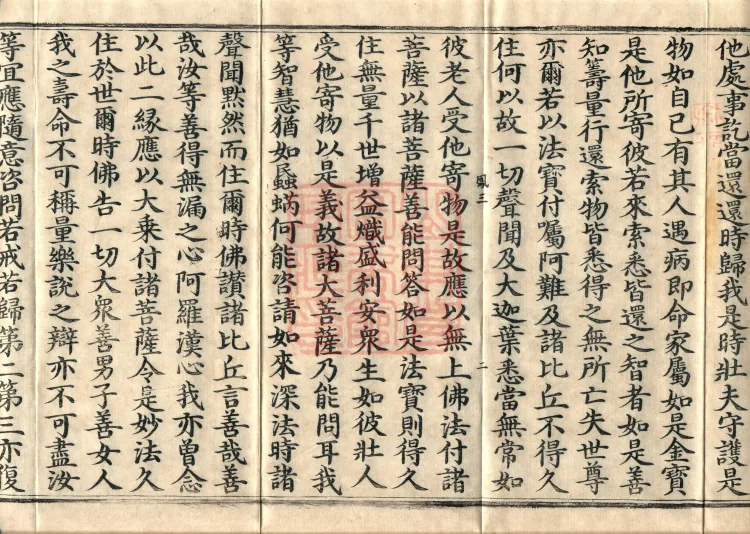 他處事訖當還還時歸我是時壯夫守護是
物如自己有其人遇病即命家屬如是金寶
是他所寄彼若來索悉皆還之智者如是善
知籌量行還索物皆悉得之無所亡失世尊
亦爾若以法寶付囑阿難及諸比丘不得久
住何以故一切聲聞及大迦葉悉當無常如
鳳三
二
彼老人受他寄物是故應以無上佛法付諸
菩薩以諸菩薩善能問答如是法寶則得久
住無量千世增益熾盛利安眾生如彼壯人
受他寄物以是義故諸大菩薩乃能問耳我
等智慧猶如蟁蝱何能咨請如來深法時諸
聲聞默然而住爾時佛讚諸比丘言善哉善
哉汝等善得無漏之心阿羅漢心我亦曾念
以此二緣應以大乘付諸菩薩令是妙法久
住於世爾時佛告一切大眾善男子善女人
我之壽命不可稱量樂說之辯亦不可盡汝
等宜應隨意咨問若戒若歸第二第三亦復